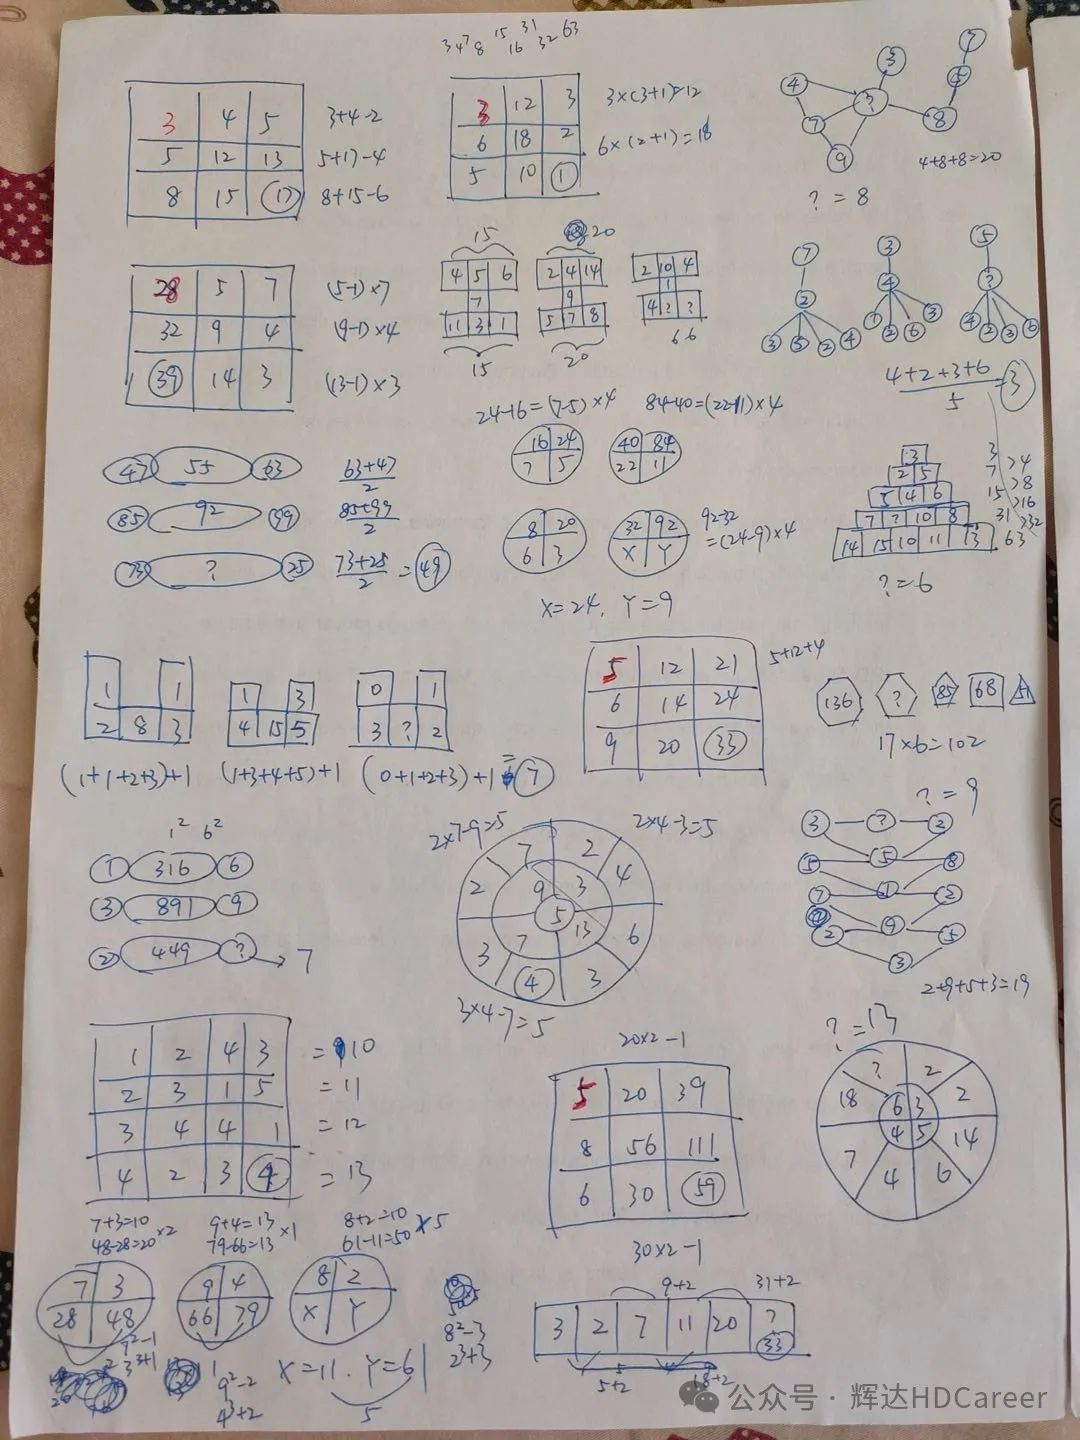 3 4 7 8 15 16 31 32 63
3 4 5
5 12 13
8 15 17
3+4-2
5+12-4
8+15-6
3 12 3
6 18 2
5 10 1
3×(3+1)=12
6×(2+1)=18
4 3 7
?
7 8
9
4+8+8=20
?=8
28 5 7
32 9 4
39 14 3
(5-1)×7
(9-1)×4
(13-1)×3
15
4 5 6
7
11 3 1
15
20
2 4 14
9
5 7 8
20
2 10 4
1
4 ? ?
6 6
7
2
3 5 2 4
3
4
1 2 6 3
5
?
4 2 3 6
4+2+3+6
5
=3
24-16=(7-5)×4
84-40=(22-11)×4
16 24
7 5
40 84
22 11
8 20
6 3
32 92
X Y
92-32
=(24-9)×4
X=24. Y=9
47 55 63
63+47
2
85 92 99
85+99
2
73 ? 25
73+25
2
=49
3
2 5
5 4 6
7 ? 10 8
14 15 10 11 13
3
7 >4
15 >8
31 >16
63 >32
?=6
1 1
2 8 3
(1+1+2+3)+1
1 3
4 15 5
(1+3+4+5)+1
0 1
3 ? 2
(0+1+2+3)+1=7
5 12 21
6 14 24
9 20 33
5+12+4
136 ? 85 68 51
17×6=102
1² 6²
1 316 6
3 891 9
2 449 ? 7
2×7-9=5
2×4-3=5
7 2
2 9 3 4
5
3 7 13 6
4 3
3×4-7=5
?=9
3 ? 2
5 5 8
7 1 2
2 9 5
3
2+9+5+3=19
1 2 4 3 =10
2 3 1 5 =11
3 4 4 1 =12
4 2 3 4 =13
20×2-1
5 20 39
8 56 111
6 30 59
30×2-1
?=13
? 2
18 6 3 2
7 4 5 14
4 6
7+3=10
48-28=20 ×2
9+4=13
79-66=13 ×1
8+2=10
61-11=50 ×5
7 3
28 48
9 4
66 79
8 2
X Y
9²-1
3³+1
9²-2
4³+2
8²-3
2³+3
X=11. Y=61
5
9+2
31+2
3 2 7 11 20 ?
33
5+2
18+2
公众号·辉达HDCareer